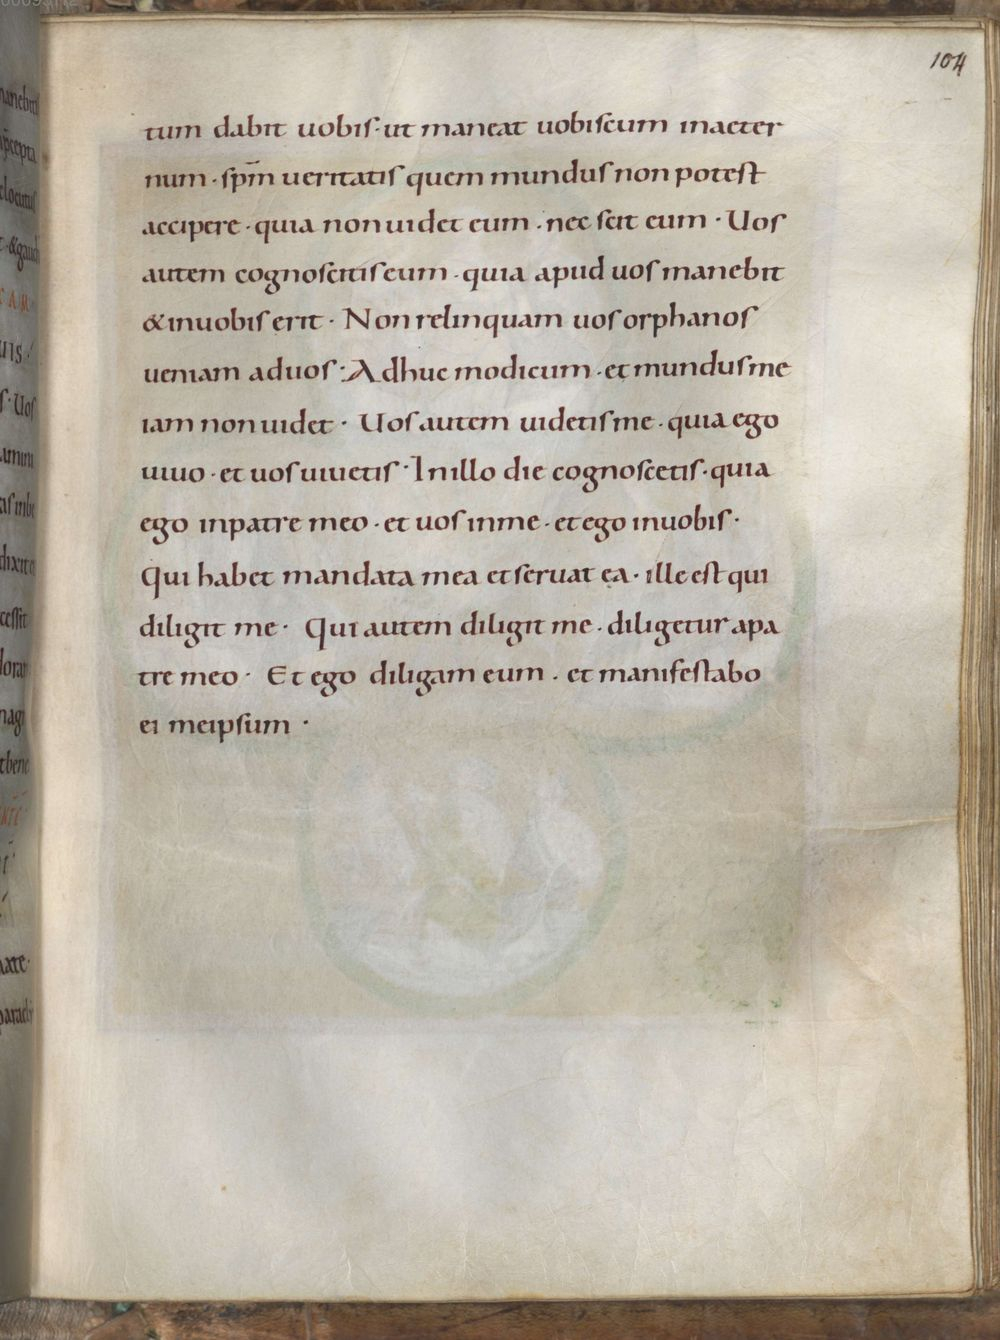 104
tum dabit uobis· ut maneat uobiscum inaeter
num · sp̅m ueritatis quem mundus non potest
accipere · quia non uidet eum · nec scit eum · Uos
autem cognoscitis eum · quia apud uos manebit
& inuobis erit · Non relinquam uos orphanos
ueniam aduos · Adhuc modicum · et mundus me
iam non uidet · Uos autem uidetis me · quia ego
uiuo · et uos uiuetis · In illo die cognoscetis · quia
ego inpatre meo · et uos inme · et ego inuobis ·
Qui habet mandata mea et seruat ea · ille est qui
diligit me · Qui autem diligit me · diligetur apa
tre meo · Et ego diligam eum · et manifestabo
ei meipsum ·